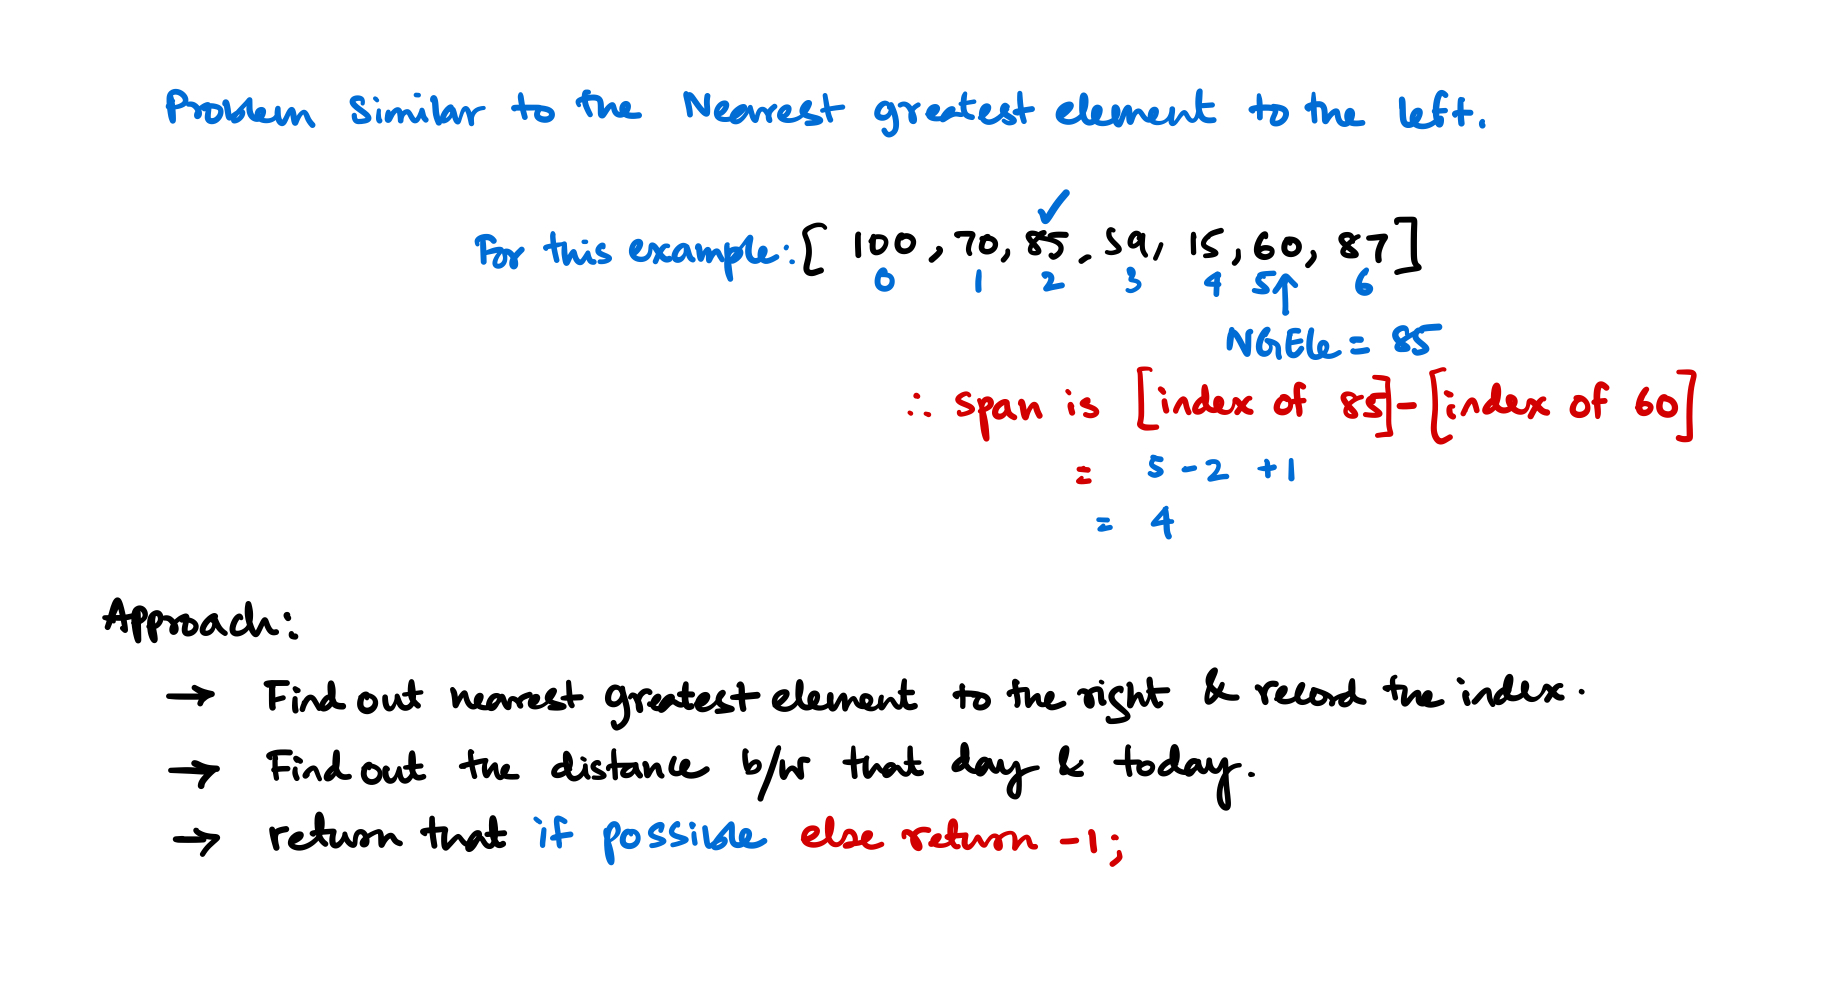 Problem Similar to the Nearest greatest element to the left.
✓
For this example: [ 100, 70, 85, 59, 15, 60, 87 ]
0 1 2 3 4 5 ↑ 6
NGEle = 85
∴ span is [index of 85] - [index of 60]
= 5 - 2 + 1
= 4
Approach:
→ Find out nearest greatest element to the right & record the index.
→ Find out the distance b/w that day & today.
→ return that if possible else return -1;